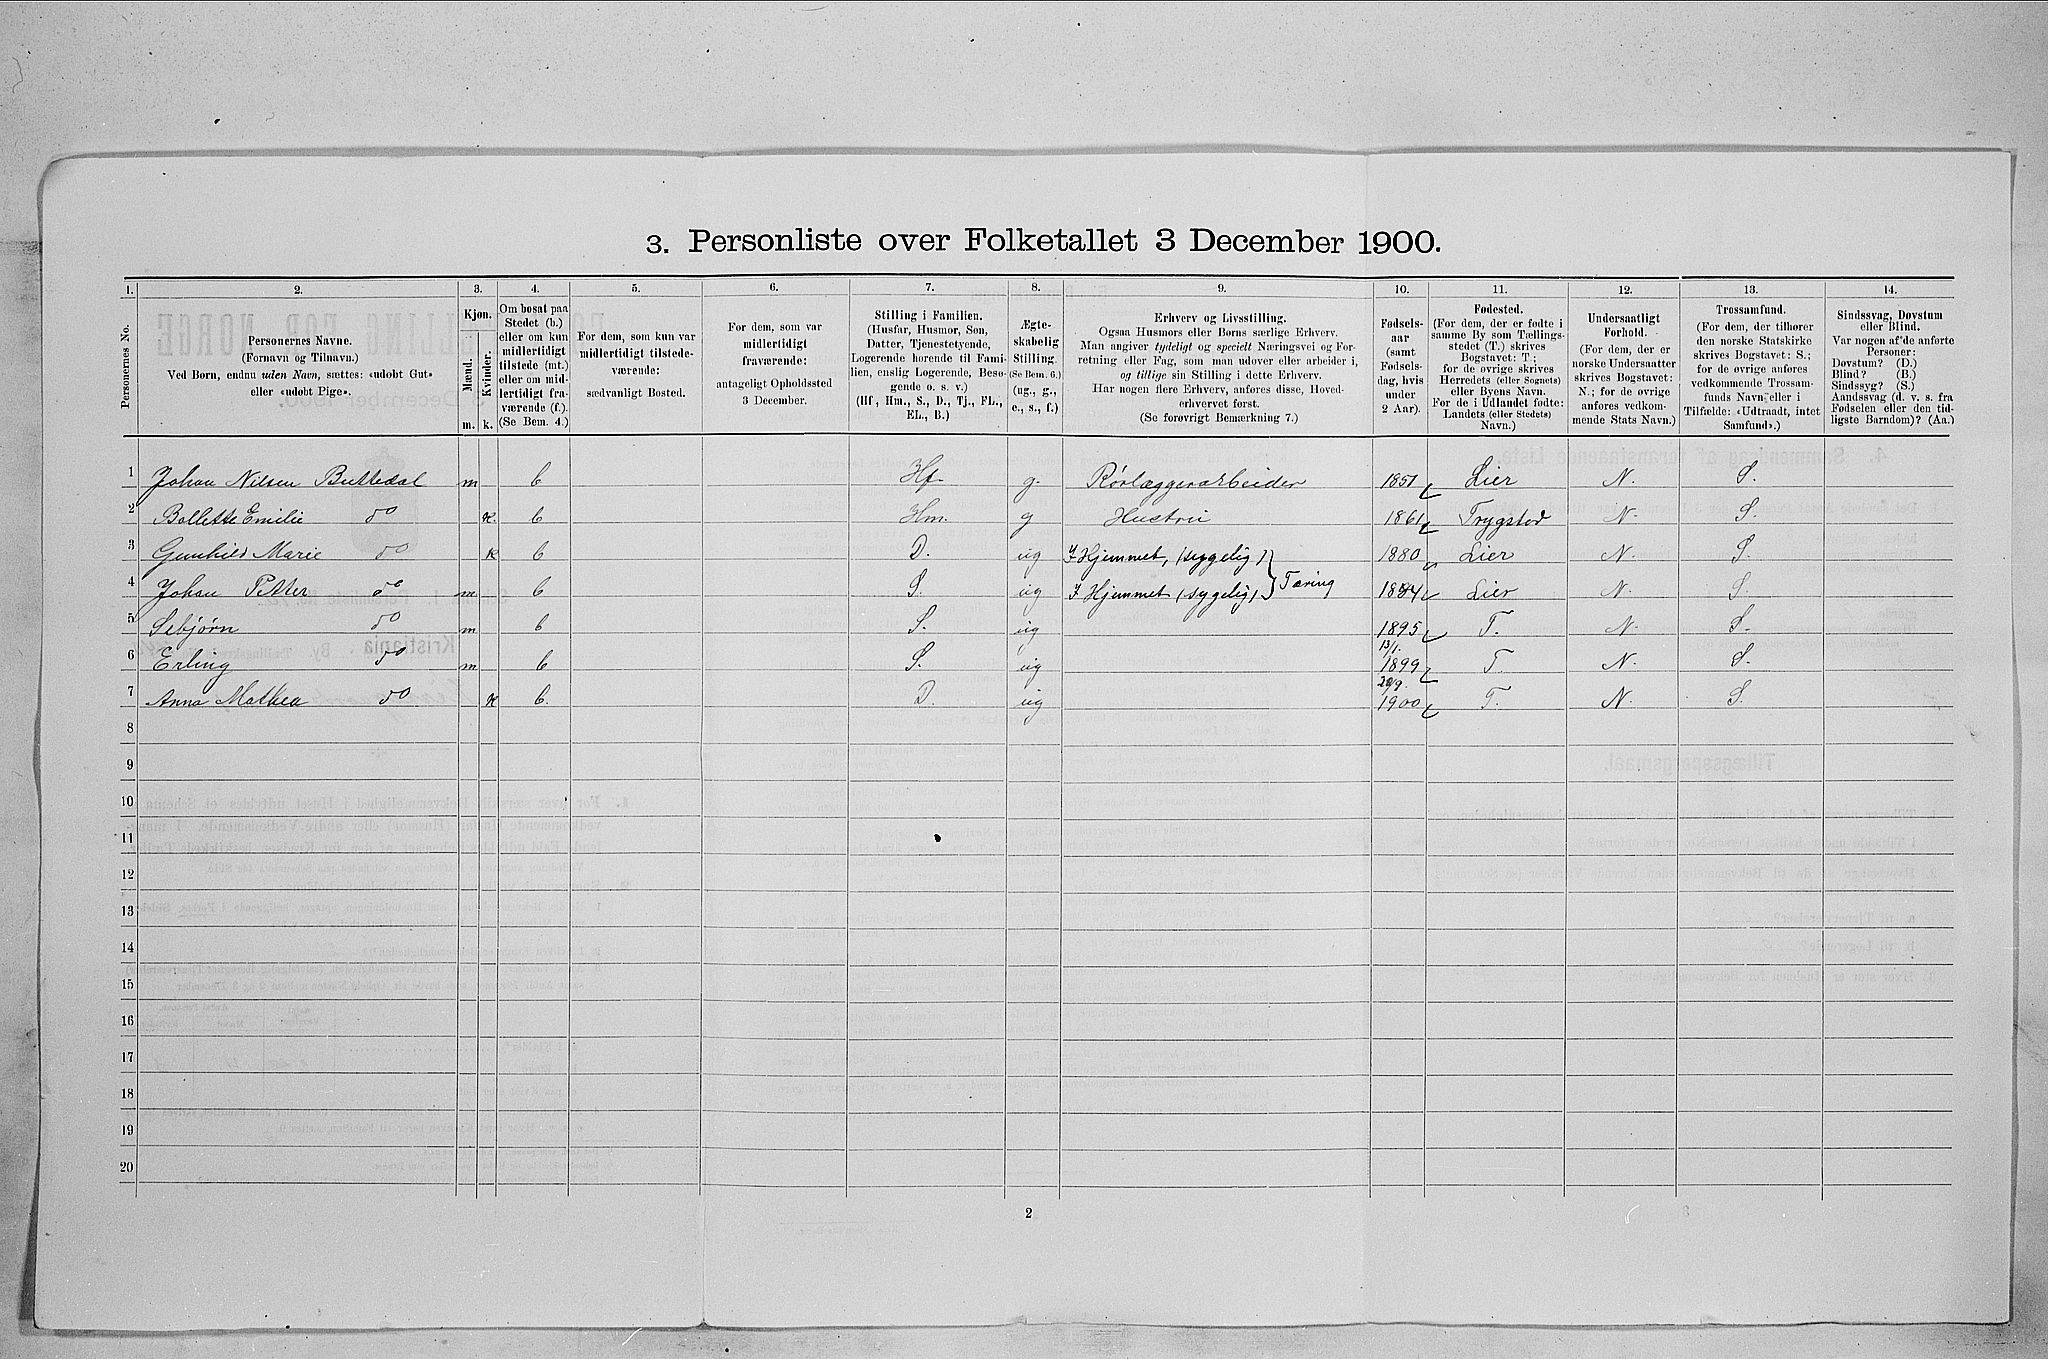 3. Personliste over Folketallet 3 December 1900.
1. 2. 3. 4. 5. 6. 7. 8. 9. 10. 11. 12. 13. 14.
Personernes No.
Personernes Navne.
(Fornavn og Tilnavn.)
Ved Børn, endnu uden Navn, sættes: «udøbt Gut»
eller «udøbt Pige».
Kjøn.
Mænd.
Kvinder.
m. k.
Om bosat paa
Stedet (b.)
eller om kun
midlertidigt
tilstede (mt.)
eller om mid-
lertidigt fra-
værende (f.).
(Se Bem. 4.)
For dem, som kun var
midlertidigt tilstede-
værende:
sædvanligt Bosted.
For dem, som var
midlertidigt
fraværende:
antageligt Opholdssted
3 December.
Stilling i Familien.
(Husfar, Husmor, Søn,
Datter, Tjenestetyende,
Logerende hørende til Fami-
lien, enslig Logerende, Besø-
gende o. s. v.)
(Hf, Hm., S., D., Tj., FL.,
EL., B.)
Ægte-
skabelig
Stilling.
(Se Bem. 6.)
(ug., g.,
e., s., f.)
Erhverv og Livsstilling.
Ogsaa Husmors eller Børns særlige Erhverv.
Man angiver tydeligt og specielt Næringsvei og For-
retning eller Fag, som man udøver eller arbeider i,
og tillige sin Stilling i dette Erhverv.
Har nogen flere Erhverv, anføres disse, Hoved-
erhvervet først.
(Se forøvrigt Bemærkning 7.)
Fødsels-
aar
(samt
Fødsels-
dag, hvis
under
2 Aar).
Fødested.
(For dem, der er fødte i
samme By som Tællings-
stedet (T.) skrives
Bogstavet: T;
for de øvrige skrives
Herredets (eller Sognets)
eller Byens Navn.
For de i Udlandet fødte:
Landets (eller Stedets)
Navn.)
Undersaatligt
Forhold.
(For dem, der er
norske Undersaatter
skrives Bogstavet:
N.; for de øvrige
anføres vedkom-
mende Stats Navn.)
Trossamfund.
(For dem, der tilhører
den norske Statskirke
skrives Bogstavet: S.;
for de øvrige anføres
vedkommende Trossam-
funds Navn, eller i
Tilfælde: «Udtraadt, intet
Samfund».)
Sindssvag, Døvstum
eller Blind.
Var nogen af de anførte
Personer:
Døvstum? (D.)
Blind? (B.)
Sindssyg? (S.)
Aandssvag (d. v. s. fra
Fødselen eller den tid-
ligste Barndom)? (Aa.)
1 Johan Nilsen Buttedal m b Hf. g. Rørlæggerarbeider 1851 Lier N. S.
2 Bollette Emilie do k. b Hm. g Hustru 1861 Trygstad N. S.
3 Gunhild Marie do k b D. ug I Hjemmet, (sygelig) 1880 Lier N. S.
4 Johan Petter do m b S. ug I Hjemmet (sygelig) } Tæring 1884 Lier N. S.
5 Sebjørn do m b S. ug 1895 T. N. S.
6 Erling do m b S. ug 13/1. 1899 T. N. S.
7 Anna Mathea do k b. D. ug 1900 T. N. S.
8
9
10
11
12
13
14
15
16
17
18
19
20
2